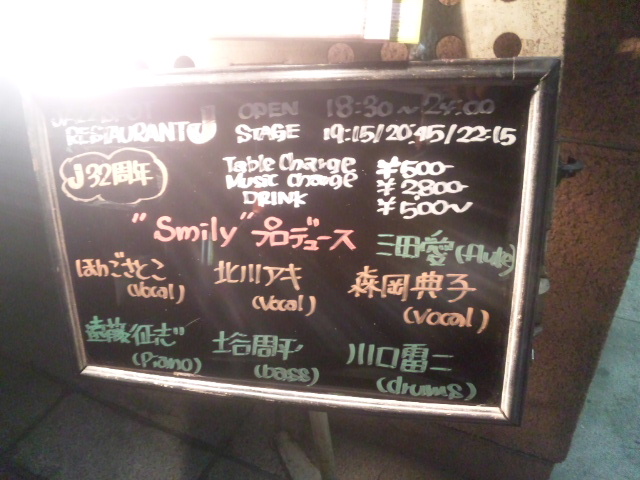 RESTAURANT J
OPEN 18:30~24:00
STAGE 19:15/20:45/22:15
J32周年
Table Charge ¥600-
Music Charge ¥2,800-
DRINK ¥500~
"Smily" プロデュース
三田愛(flute)
ほんごさとこ
(vocal)
北川アキ
(vocal)
森岡典子
(vocal)
遠藤征志
(piano)
周平
(bass)
川口雷二
(drums)